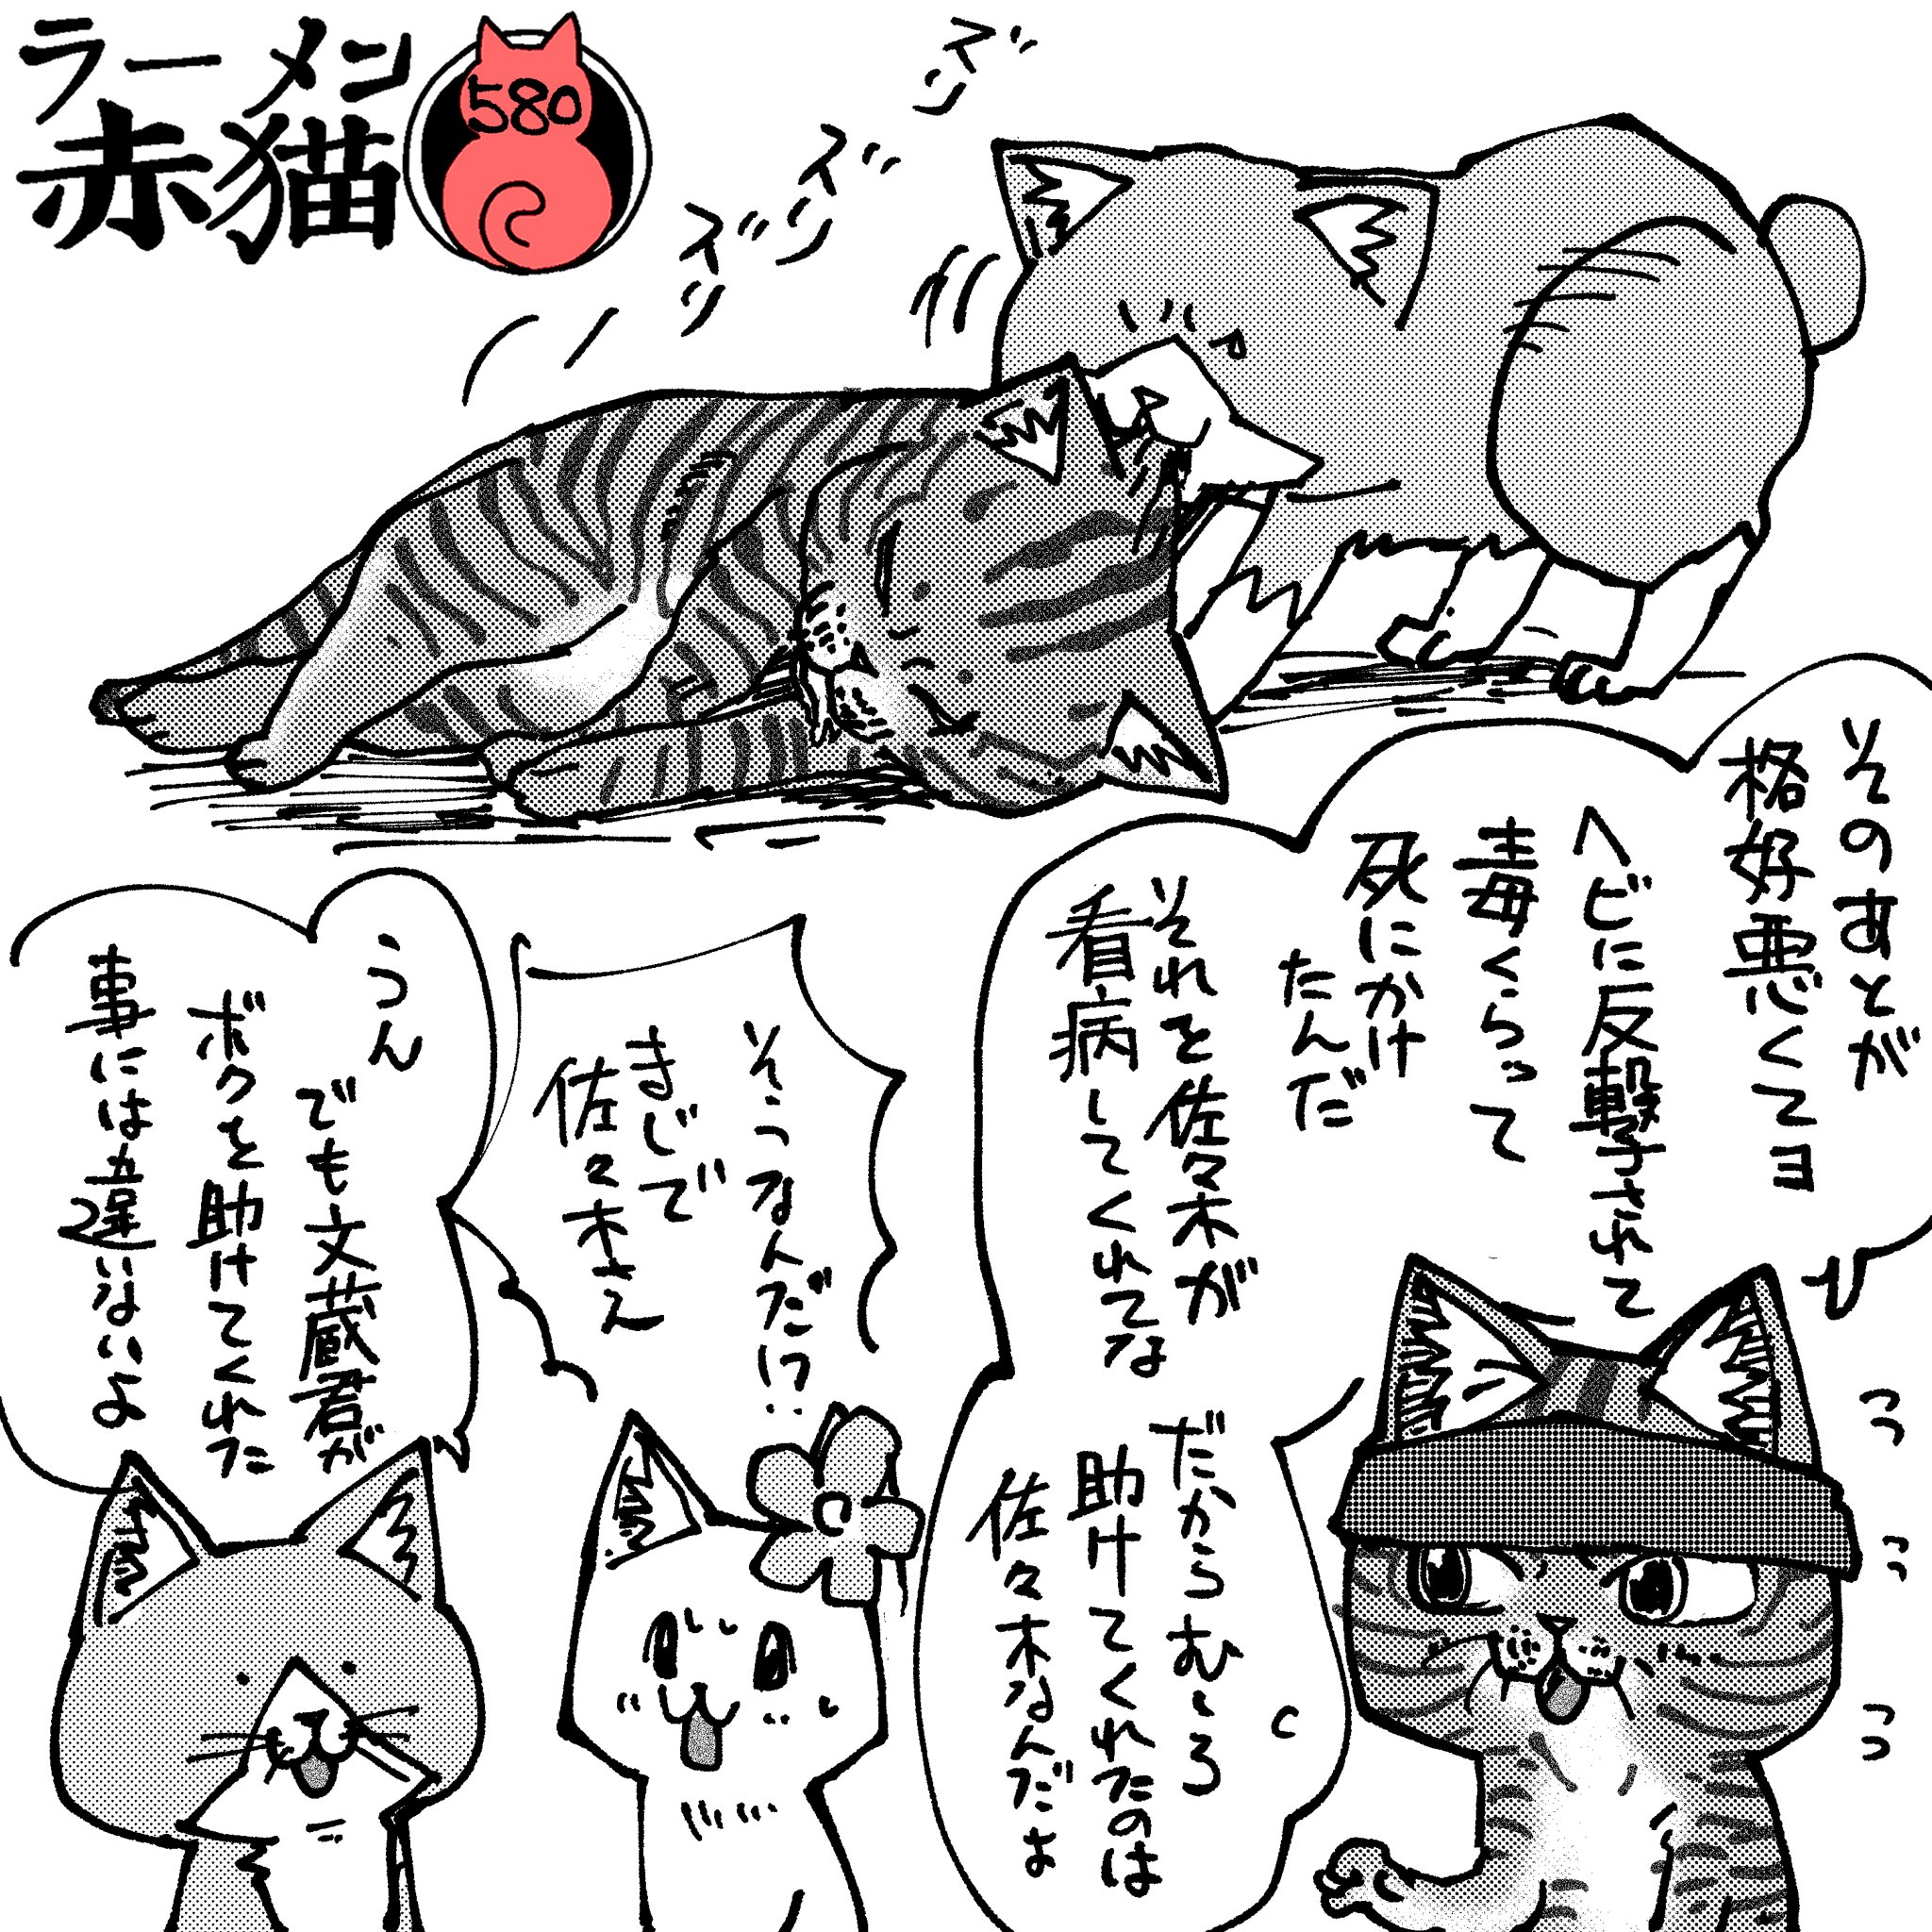 ラーメン
赤猫
580
ズリ
ズリ
ズリ
そのあとが
格好悪くてヨ
ヘビに反撃されて
毒くらって
死にかけ
たんだ
それを佐々木が
看病してくれてな
だからむしろ
助けてくれたのは
佐々木なんだよ
そうなんだ!?
まじで
佐々木さえ
うん
でも文蔵君が
ボクを助けてくれた
事には違いないよ